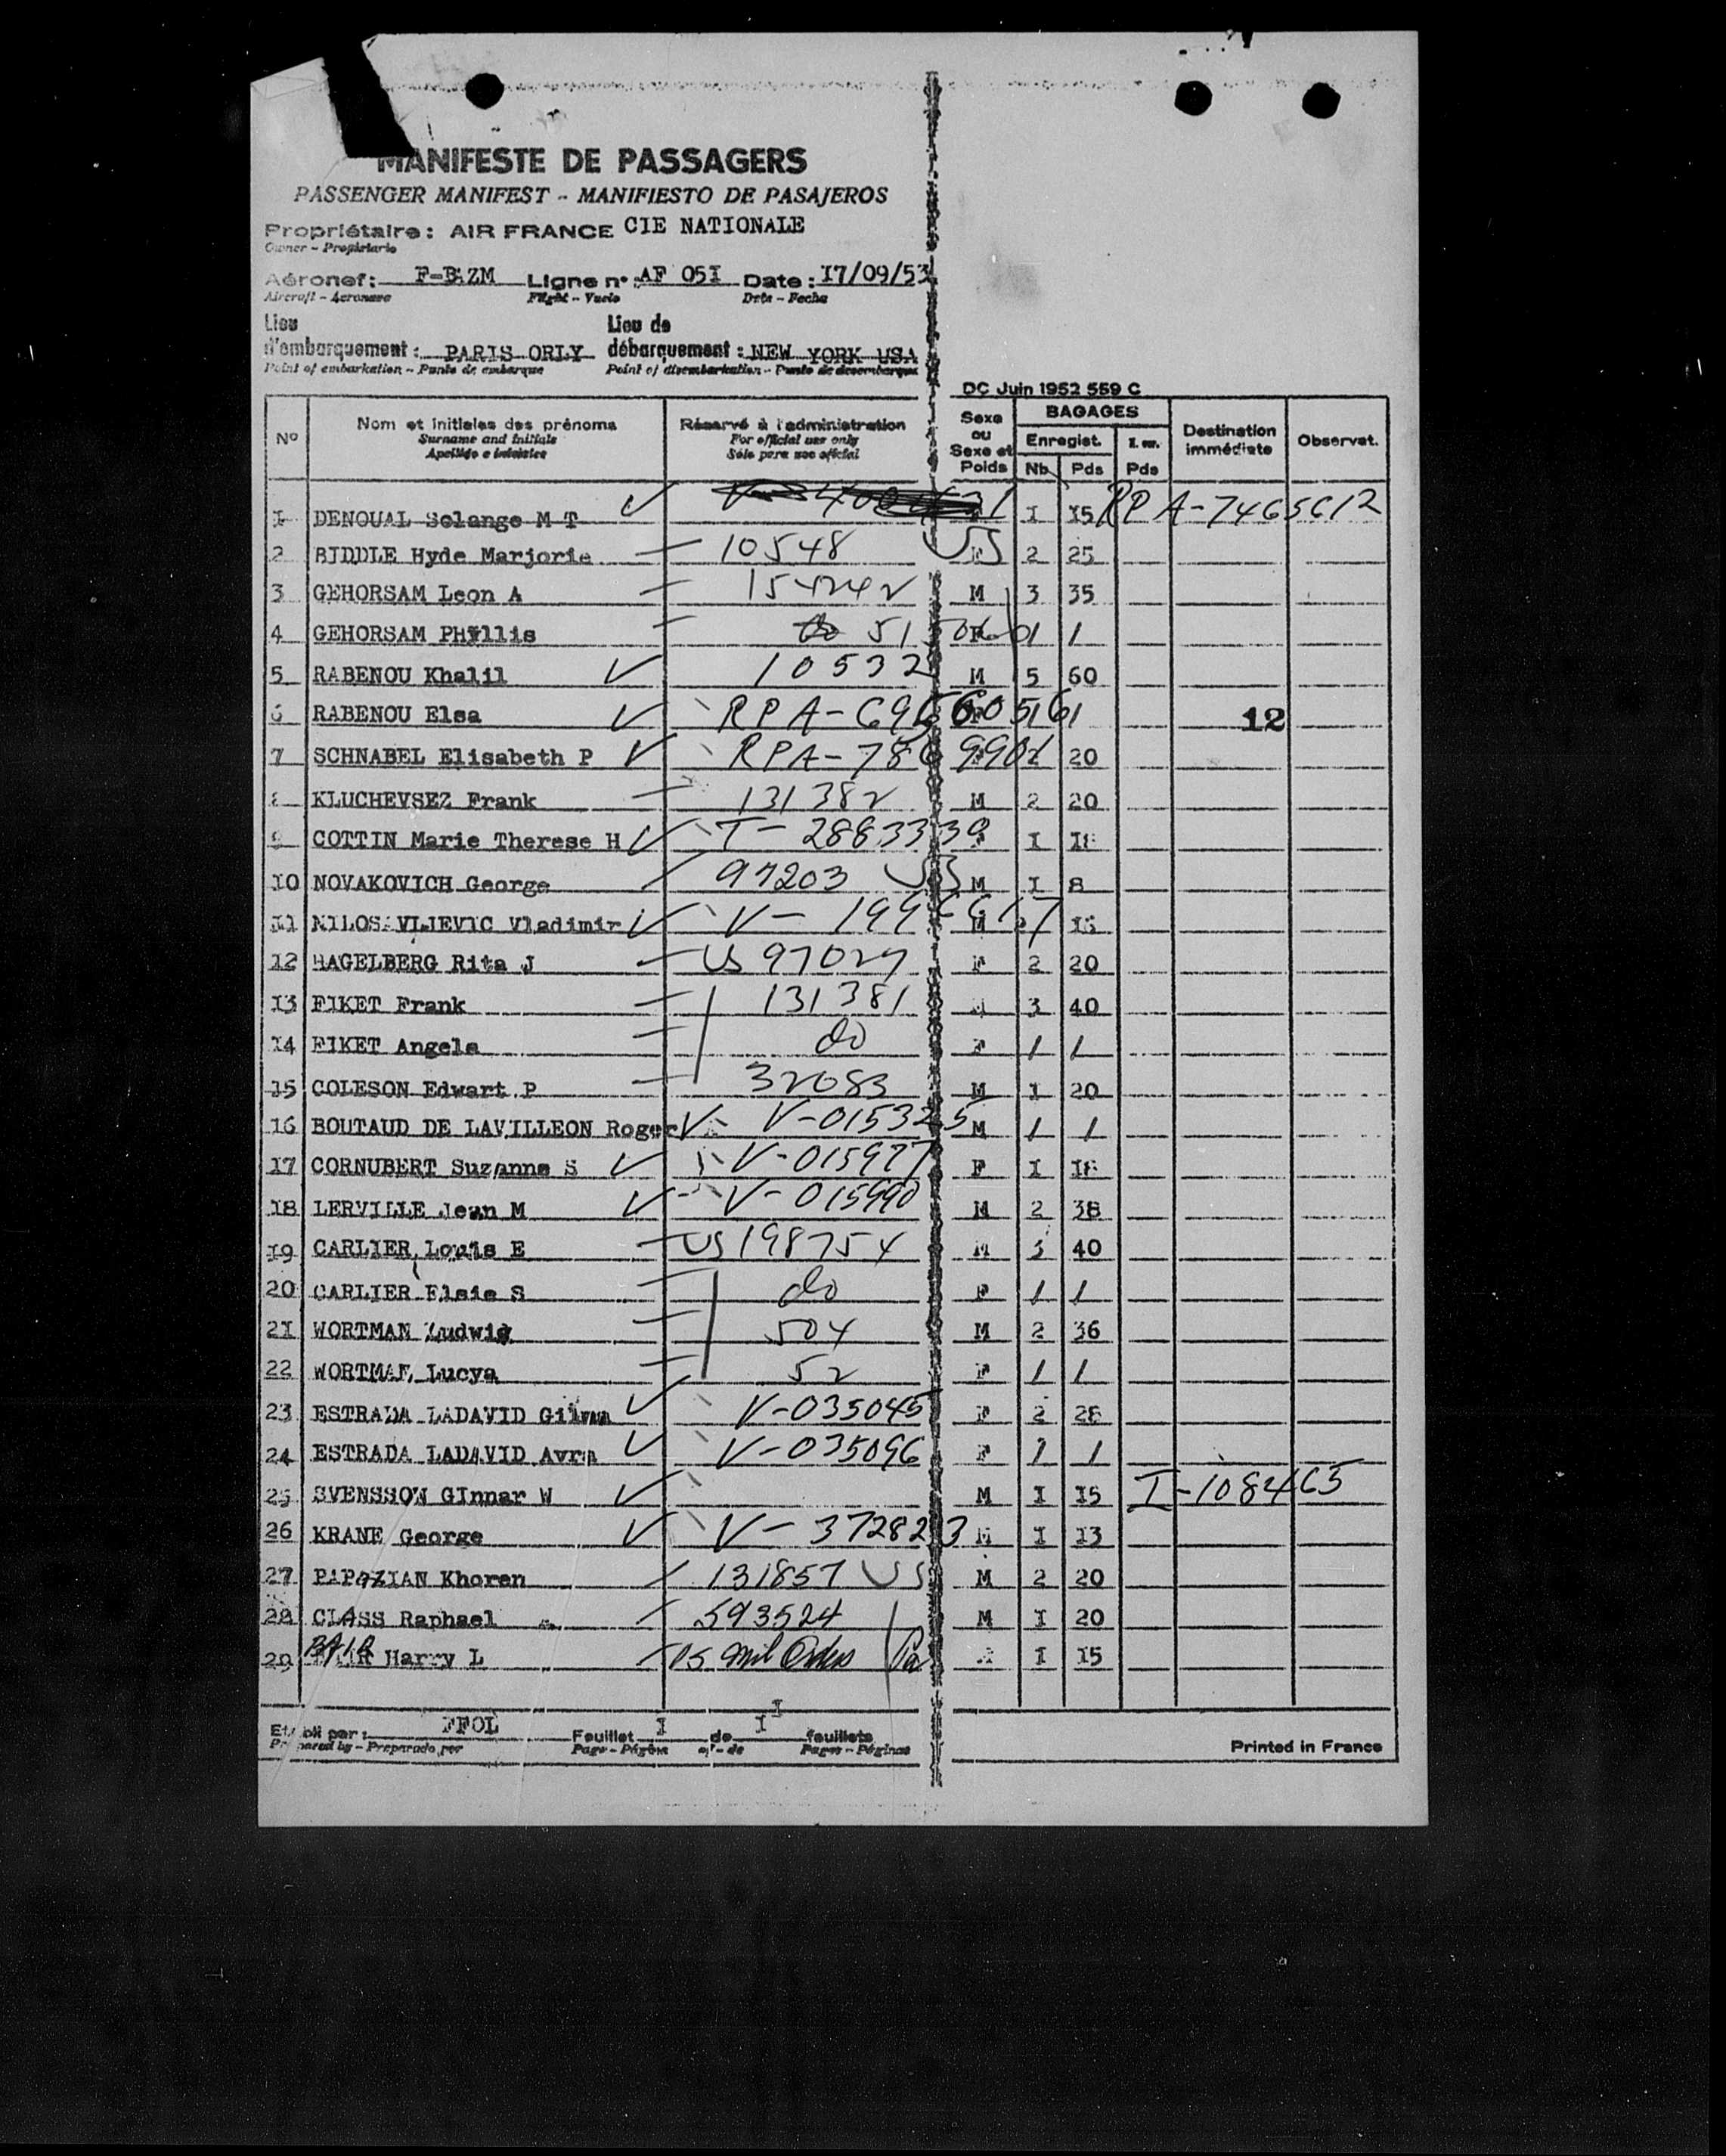 MANIFESTE DE PASSAGERS
PASSENGER MANIFEST - MANIFIESTO DE PASAJEROS
Propriétaire : AIR FRANCE CIE NATIONALE
Owner - Propietario
Aéronef : F-BAZM Ligne n° AF 051 Date : 17/09/53
Aircraft - Aeronave Flight - Vuelo Date - Fecha
Lieu d'embarquement : PARIS ORLY Lieu de débarquement : NEW YORK USA
Point of embarkation - Punto de embarque Point of disembarkation - Punto de desembarque
DC Juin 1952 559 C
N° Nom et initiales des prénoms Réservé à l'administration Sexe ou Sexe et Poids BAGAGES Destination immédiate Observat.
Surname and initials For official use only Enregist.
Apellido e iniciales Sólo para uso official Nb Pds Pds
1 DENOUAL Solange M T ✓ 1 15 RPA-7465612
2 BIDDLE Hyde Marjorie — 10548 US 2 25
3 GEHORSAM Leon A — M 3 35
4 GEHORSAM PHyllis — / /
5 RABENOU Khalil ✓ 10532 M 5 60
6 RABENOU Elsa ✓ RPA- 12
7 SCHNABEL Elisabeth P ✓ RPA- 20
8 KLUCHEVSEZ Frank — 131382 M 2 20
9 COTTIN Marie Therese H ✓ T-2883339 1 18
10 NOVAKOVICH George 97203 US M 1 8
11 MILOSAVLJEVIC Vladimir ✓ V- M
12 HAGELBERG Rita J — US 97027 F 2 20
13 FIKET Frank — 131381 3 40
14 FIKET Angela — do F / /
15 COLESON Edwart P — 32083 M 1 20
16 BOUTAUD DE LAVILLEON Roger ✓ V-015325 M / /
17 CORNUBERT Suzanne S ✓ V-015977 F 1 18
18 LERVILLE Jean M ✓ V-015990 M 2 38
19 CARLIER Louis E — US 198754 M 3 40
20 CARLIER Elsie S — do F / /
21 WORTMAN Ludwig — 504 M 2 36
22 WORTMAN Lucya — 52 F / /
23 ESTRADA LADAVID Gilma ✓ V-035045 F 2 28
24 ESTRADA LADAVID Avra ✓ V-035096 F / /
25 SVENSSON GInnar W ✓ M 1 15 I-1084465
26 KRANE George ✓ V-3728213 M 1 13
27 PAPAZIAN Khoren 131857 US M 2 20
28 CLASS Raphael 593524 M 1 20
29 BAIR Harry L Mil Orders 1 15
Etabli par : FFOL Feuillet 1 de 1 feuillets
Prepared by - Preparado por Page - Página of - de Pages - Páginas
Printed in France